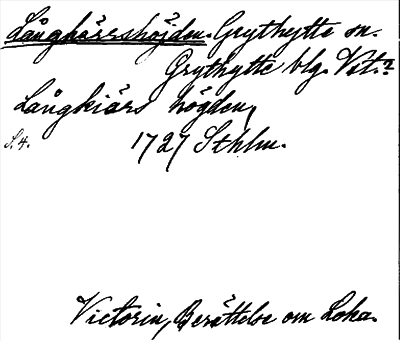 Långkärrshöjden. Grythytte sn.
Grythytte blg. Vstm.?
Långkiärs högden,
S. 4. 1727 Sthlm.
Victorin, Berättelse om Loka.